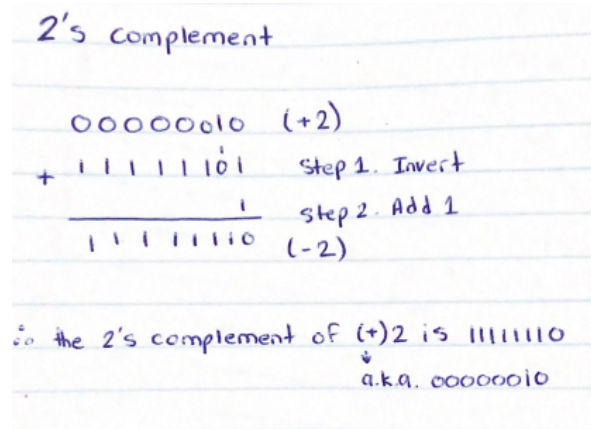 2's complement
00000010 (+2)
1
+ 11111101 Step 1. Invert
1 Step 2. Add 1
11111110 (-2)
∴ the 2's complement of (+)2 is 11111110
a.k.a. 00000010